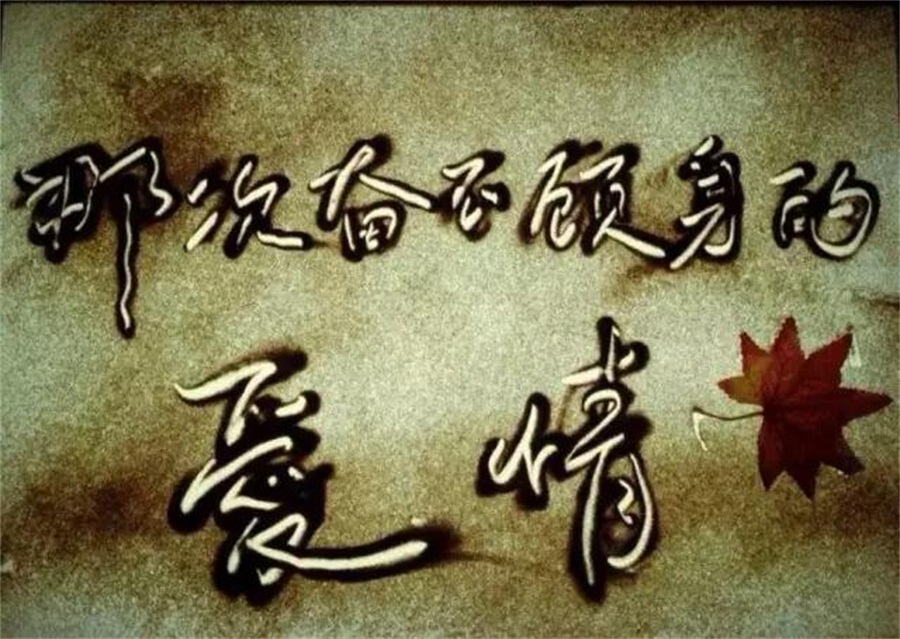 那次奋不顾身的
爱情